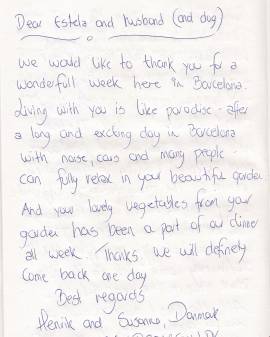 Dear Estela and Husband (and dog)
We would like to thank you for a
wonderfull week here in Barcelona.
Living with you is like paradise - after
a long and exciting day in Barcelona
with noise, cars and many people
can fully relax in your beautiful garden
And your lovely vegetables from your
garden has been a part of our dinner
all week. Thanks we will definetly
Come back one day
Best regards
Henrik and Susanne, Danmark